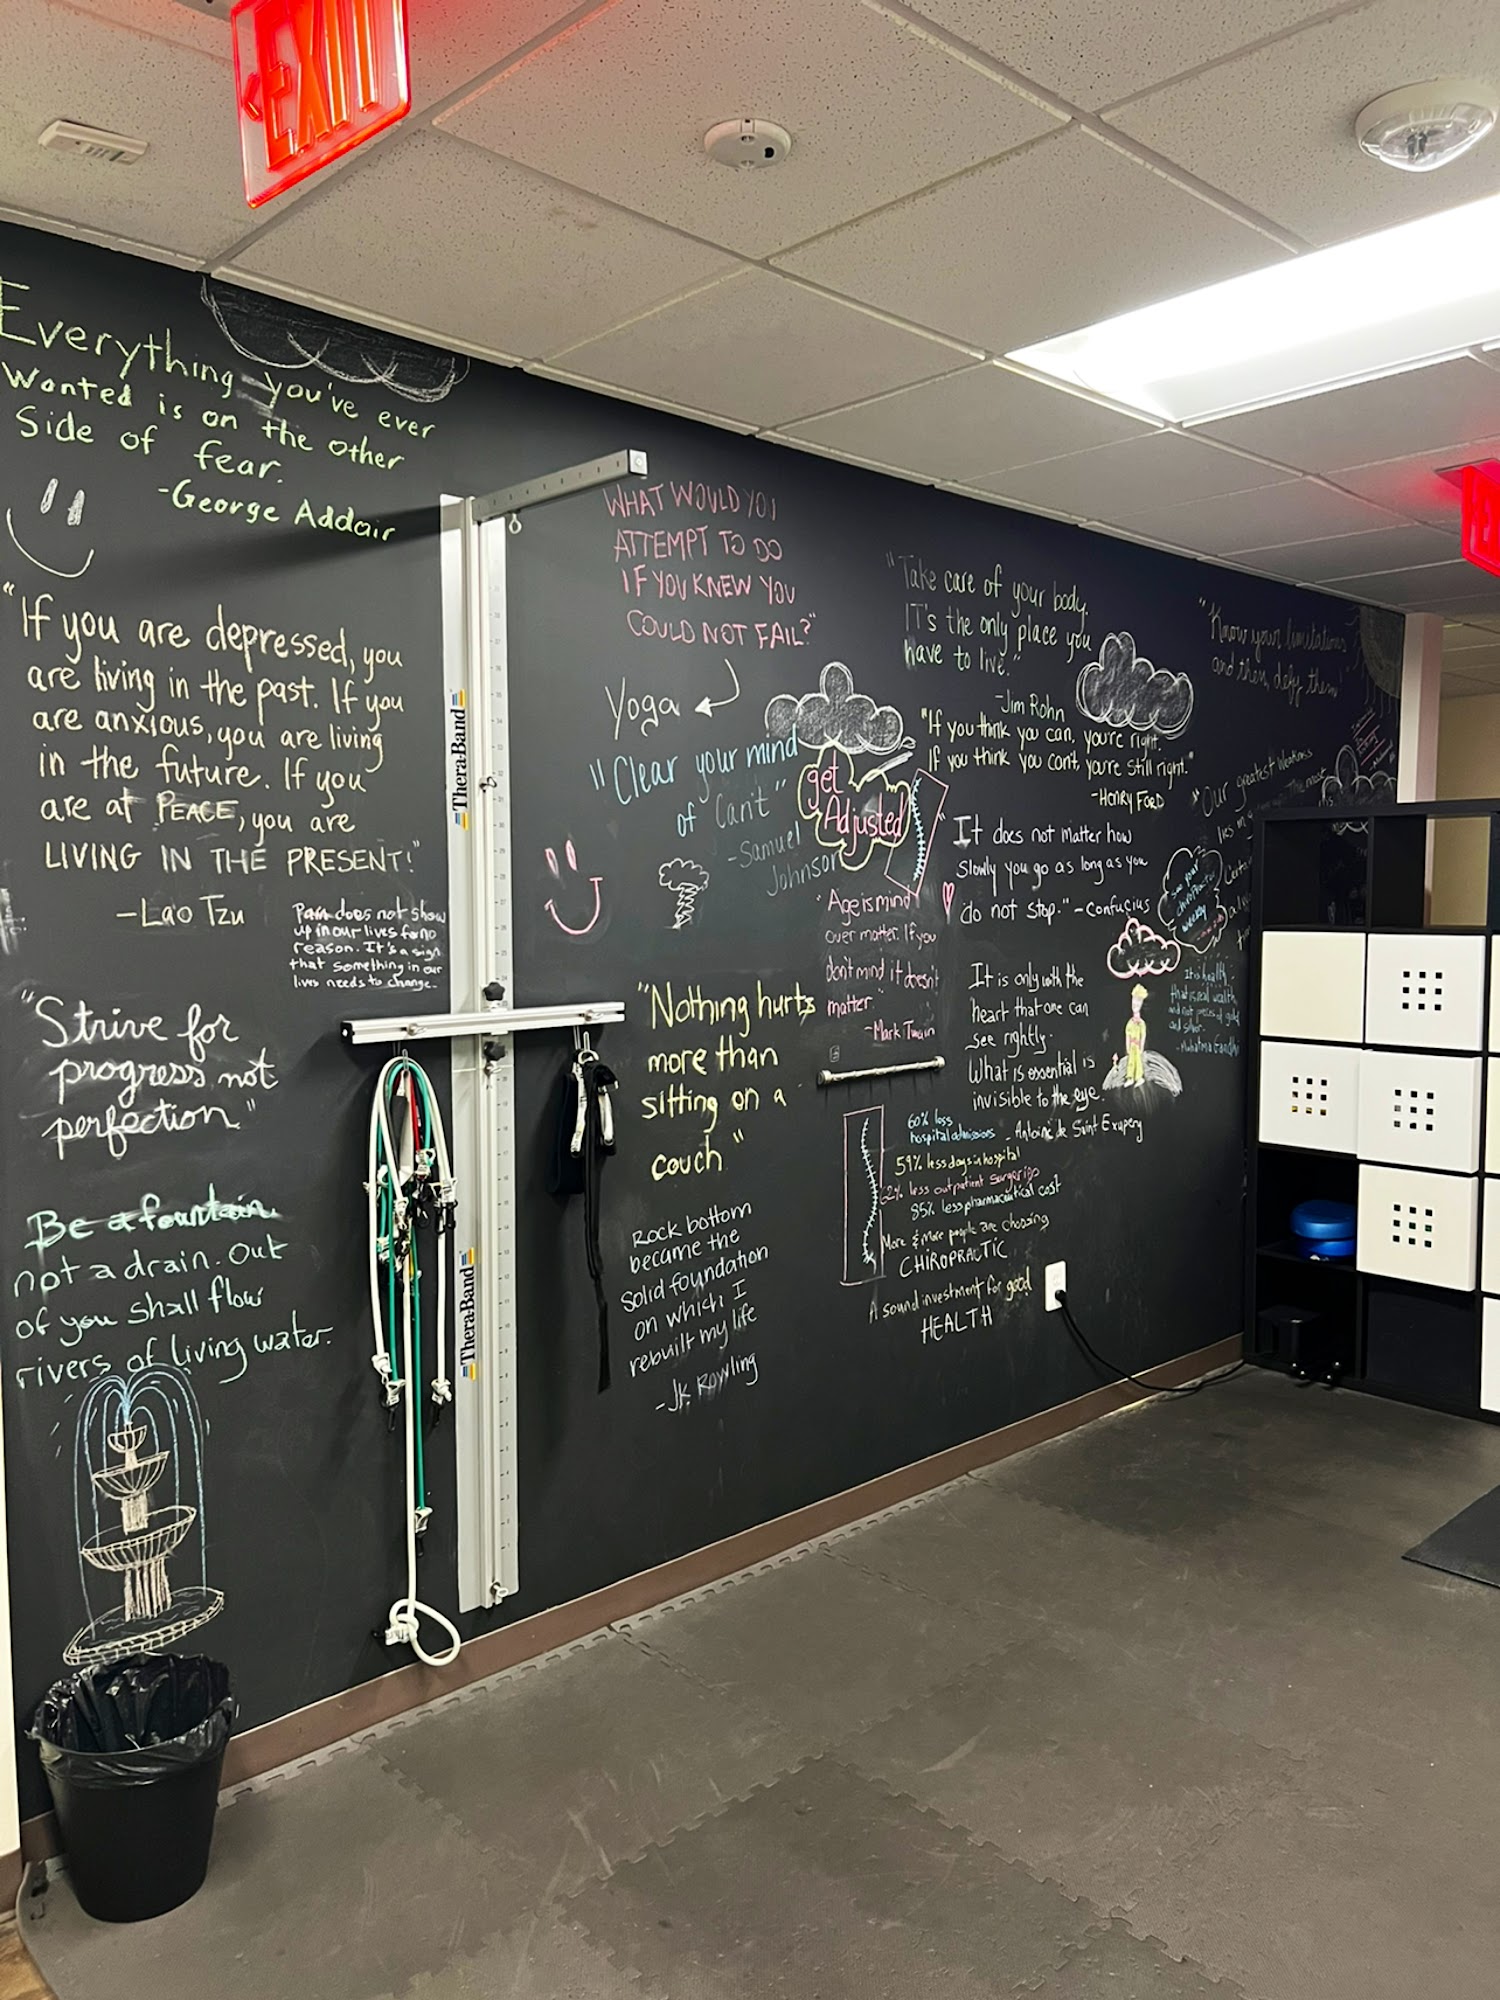 EXIT
Everything you've ever
Wanted is on the other
Side of fear.
-George Addair
"If you are depressed, you
are living in the past. If you
are anxious, you are living
in the future. If you
are at PEACE, you are
LIVING IN THE PRESENT!"
-Lao Tzu
Pain does not show
up in our lives for no
reason. It's a sign
that something in our
lives needs to change.
"Strive for
progress, not
perfection"
Be a fountain,
not a drain. Out
of you shall flow
rivers of living water.
Thera-Band
Thera-Band
WHAT WOULD YOU
ATTEMPT TO DO
IF YOU KNEW YOU
COULD NOT FAIL?"
Yoga
"Clear your mind
of Can't"
-Samuel
Johnson
get
Adjusted
"Age is mind
over matter. If you
don't mind it doesn't
matter."
-Mark Twain
"Nothing hurts
more than
sitting on a
couch"
Rock bottom
became the
solid foundation
on which I
rebuilt my life
-J.K. Rowling
"Take care of your body.
IT's the only place you
have to live."
-Jim Rohn
"If you think you can, you're right.
If you think you can't, you're still right."
-Henry Ford
It does not matter how
slowly you go as long as you
do not stop." -Confucius
It is only with the
heart that one can
see rightly.
What is essential is
invisible to the eye.
- Antoine de Saint Exupery
60% less
hospital admissions
59% less days in hospital
62% less outpatient surgeries
85% less pharmaceutical cost
More & more people are choosing
CHIROPRACTIC
A sound investment for good
HEALTH
"Know your limitations
and then, defy them"
"Our greatest weakness
lies in
The most
see your
chiropractor
weekly
It is health
that is real wealth
and not pieces of gold
and silver.
-Mahatma Gandhi